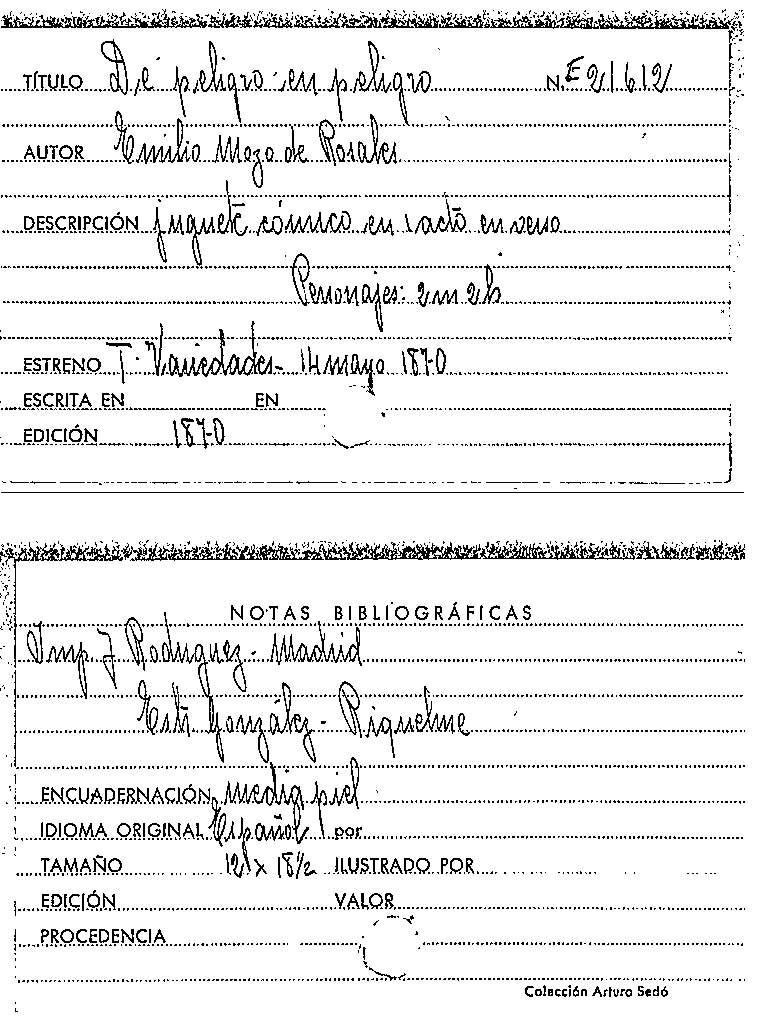 TÍTULO De peligro en peligro N. E 21612
AUTOR Emilio Mozo de Rosales
DESCRIPCIÓN juguete cómico en 1 acto en verso
Personajes: 2m 2h
ESTRENO T. Variedades- 14 mayo 1870
ESCRITA EN EN
EDICIÓN 1870
NOTAS BIBLIOGRÁFICAS
Imp J Rodriguez- Madrid
González- Riquelme
ENCUADERNACIÓN media piel
IDIOMA ORIGINAL Español por
TAMAÑO 12 x 18½ ILUSTRADO POR
EDICIÓN VALOR
PROCEDENCIA
Colección Arturo Sedó